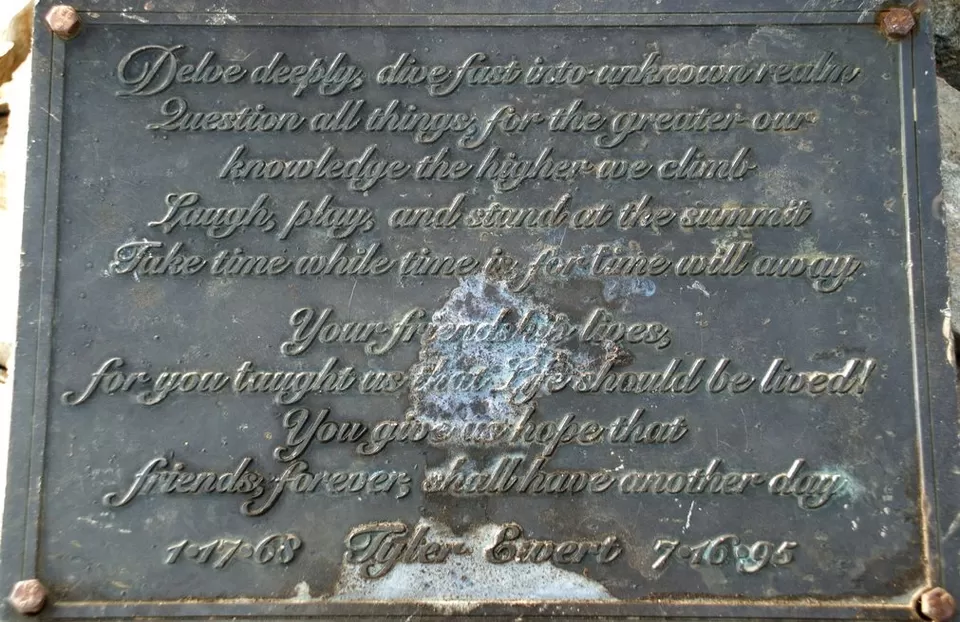 Delve deeply, dive fast into unknown realm
Question all things, for the greater our
knowledge the higher we climb
Laugh, play, and stand at the summit
Take time while time is, for time will away
Your friendship lives,
for you taught us that Life should be lived!
You give us hope that
friends, forever, shall have another day
1•17•68 Tyler Ewert 7•16•95